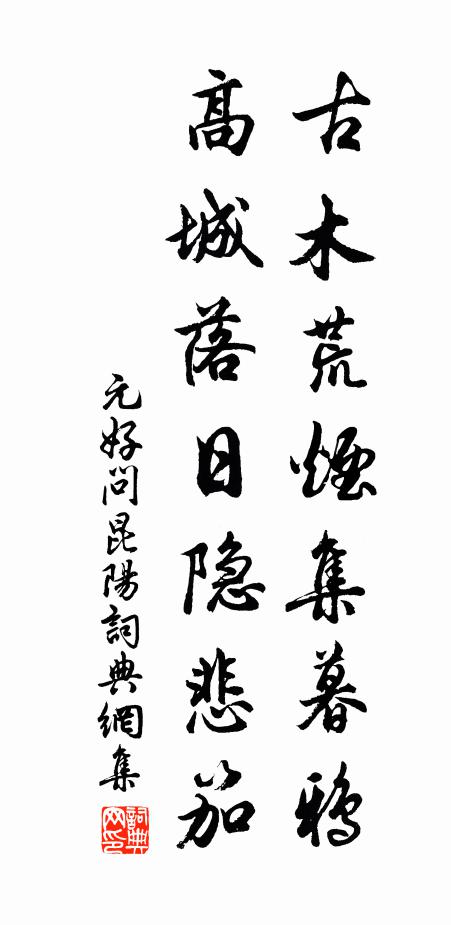 古木荒煙集暮鴉
高城落日隐悲笳
元好问昆陽詞典網集
詞典网印